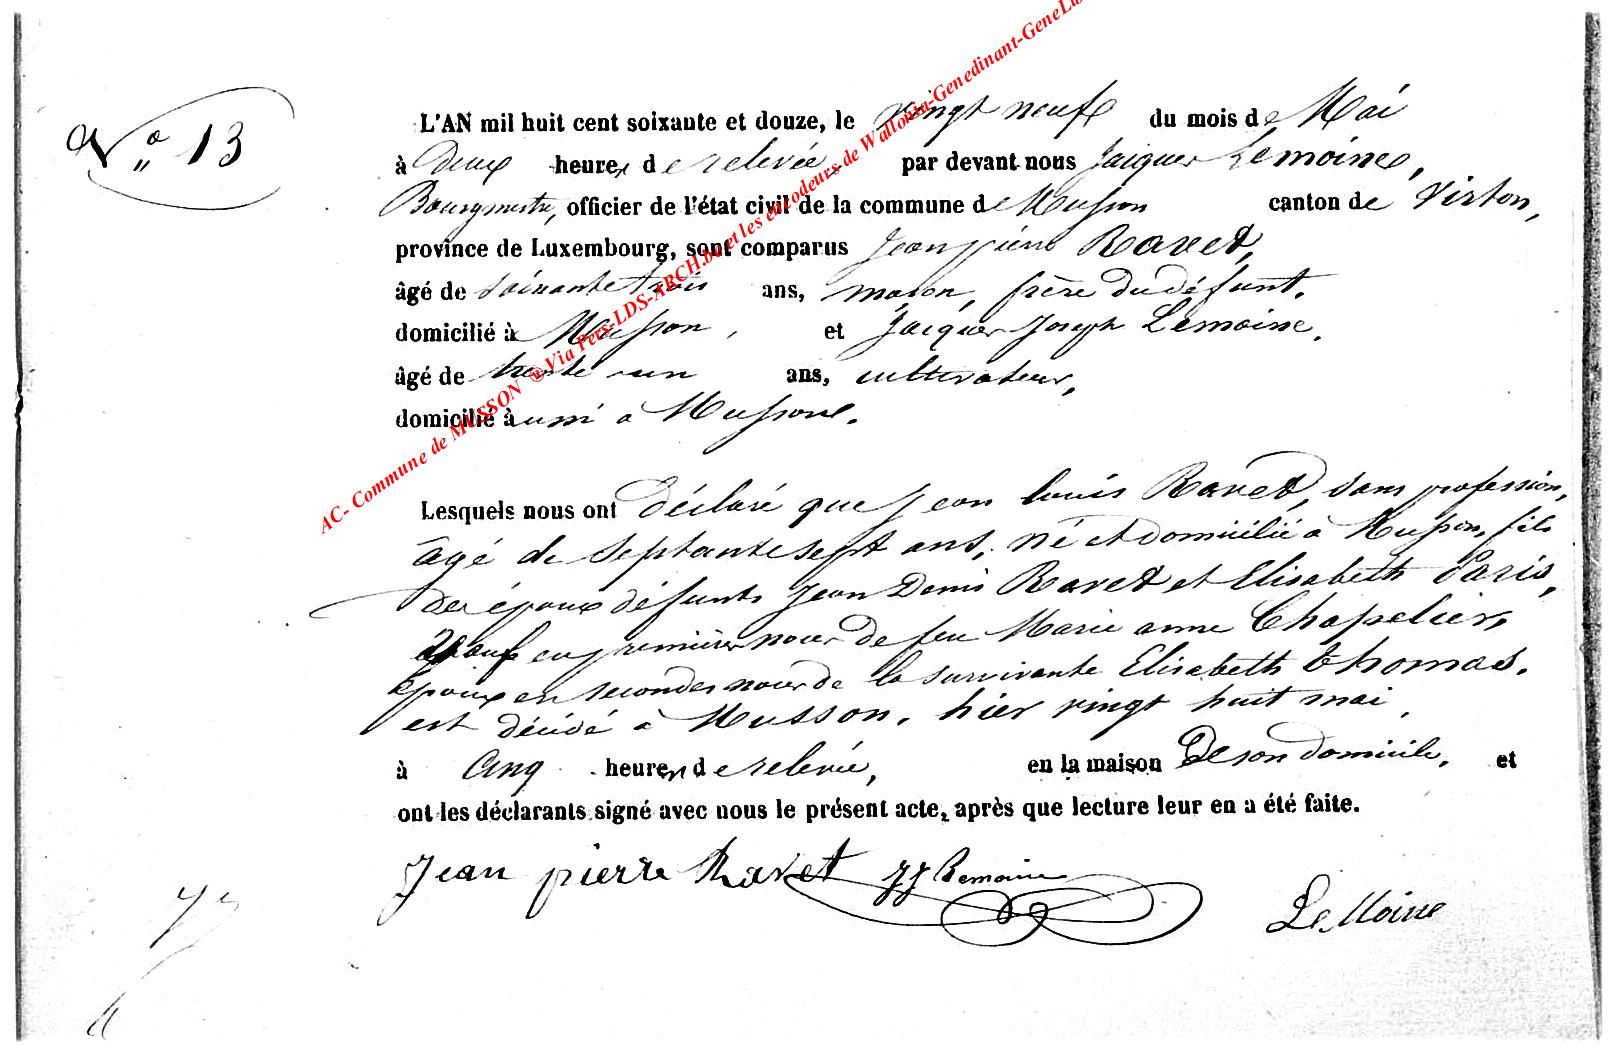 N° 13
L'AN mil huit cent soixante et douze, le vingt neuf du mois de Mai
à Deux heures de relevée, par devant nous Jacques Lemoine,
Bourgmestre, officier de l'état civil de la commune de Musson canton de Virton,
province de Luxembourg, sont comparus Jean pierre Ravet,
âgé de soixante trois ans, maçon, frère du défunt,
domicilié à Musson, et Jacques Joseph Lemoine,
âgé de trente un ans, cultivateur,
domicilié à aussi à Musson.
Lesquels nous ont déclaré que Jean Louis Ravet, sans profession,
âgé de septante sept ans, né et domicilié à Musson, fils
des époux défunts Jean Denis Ravet et Elisabeth Paris,
veuf en premières noces de feu Marie anne Chapelier,
époux en secondes noces de la survivante Elisabeth thomas,
est décédé à Musson, hier vingt huit mai,
à cinq heures de relevée, en la maison De son domicile, et
ont les déclarants signé avec nous le présent acte, après que lecture leur en a été faite.
Jean pierre Ravet JJ Lemoine
LeMoine
AC- Commune de MUSSON @ Via Pers-LDS-ARCH.be et les encodeurs de Wallonia-Genedinant-GeneLux